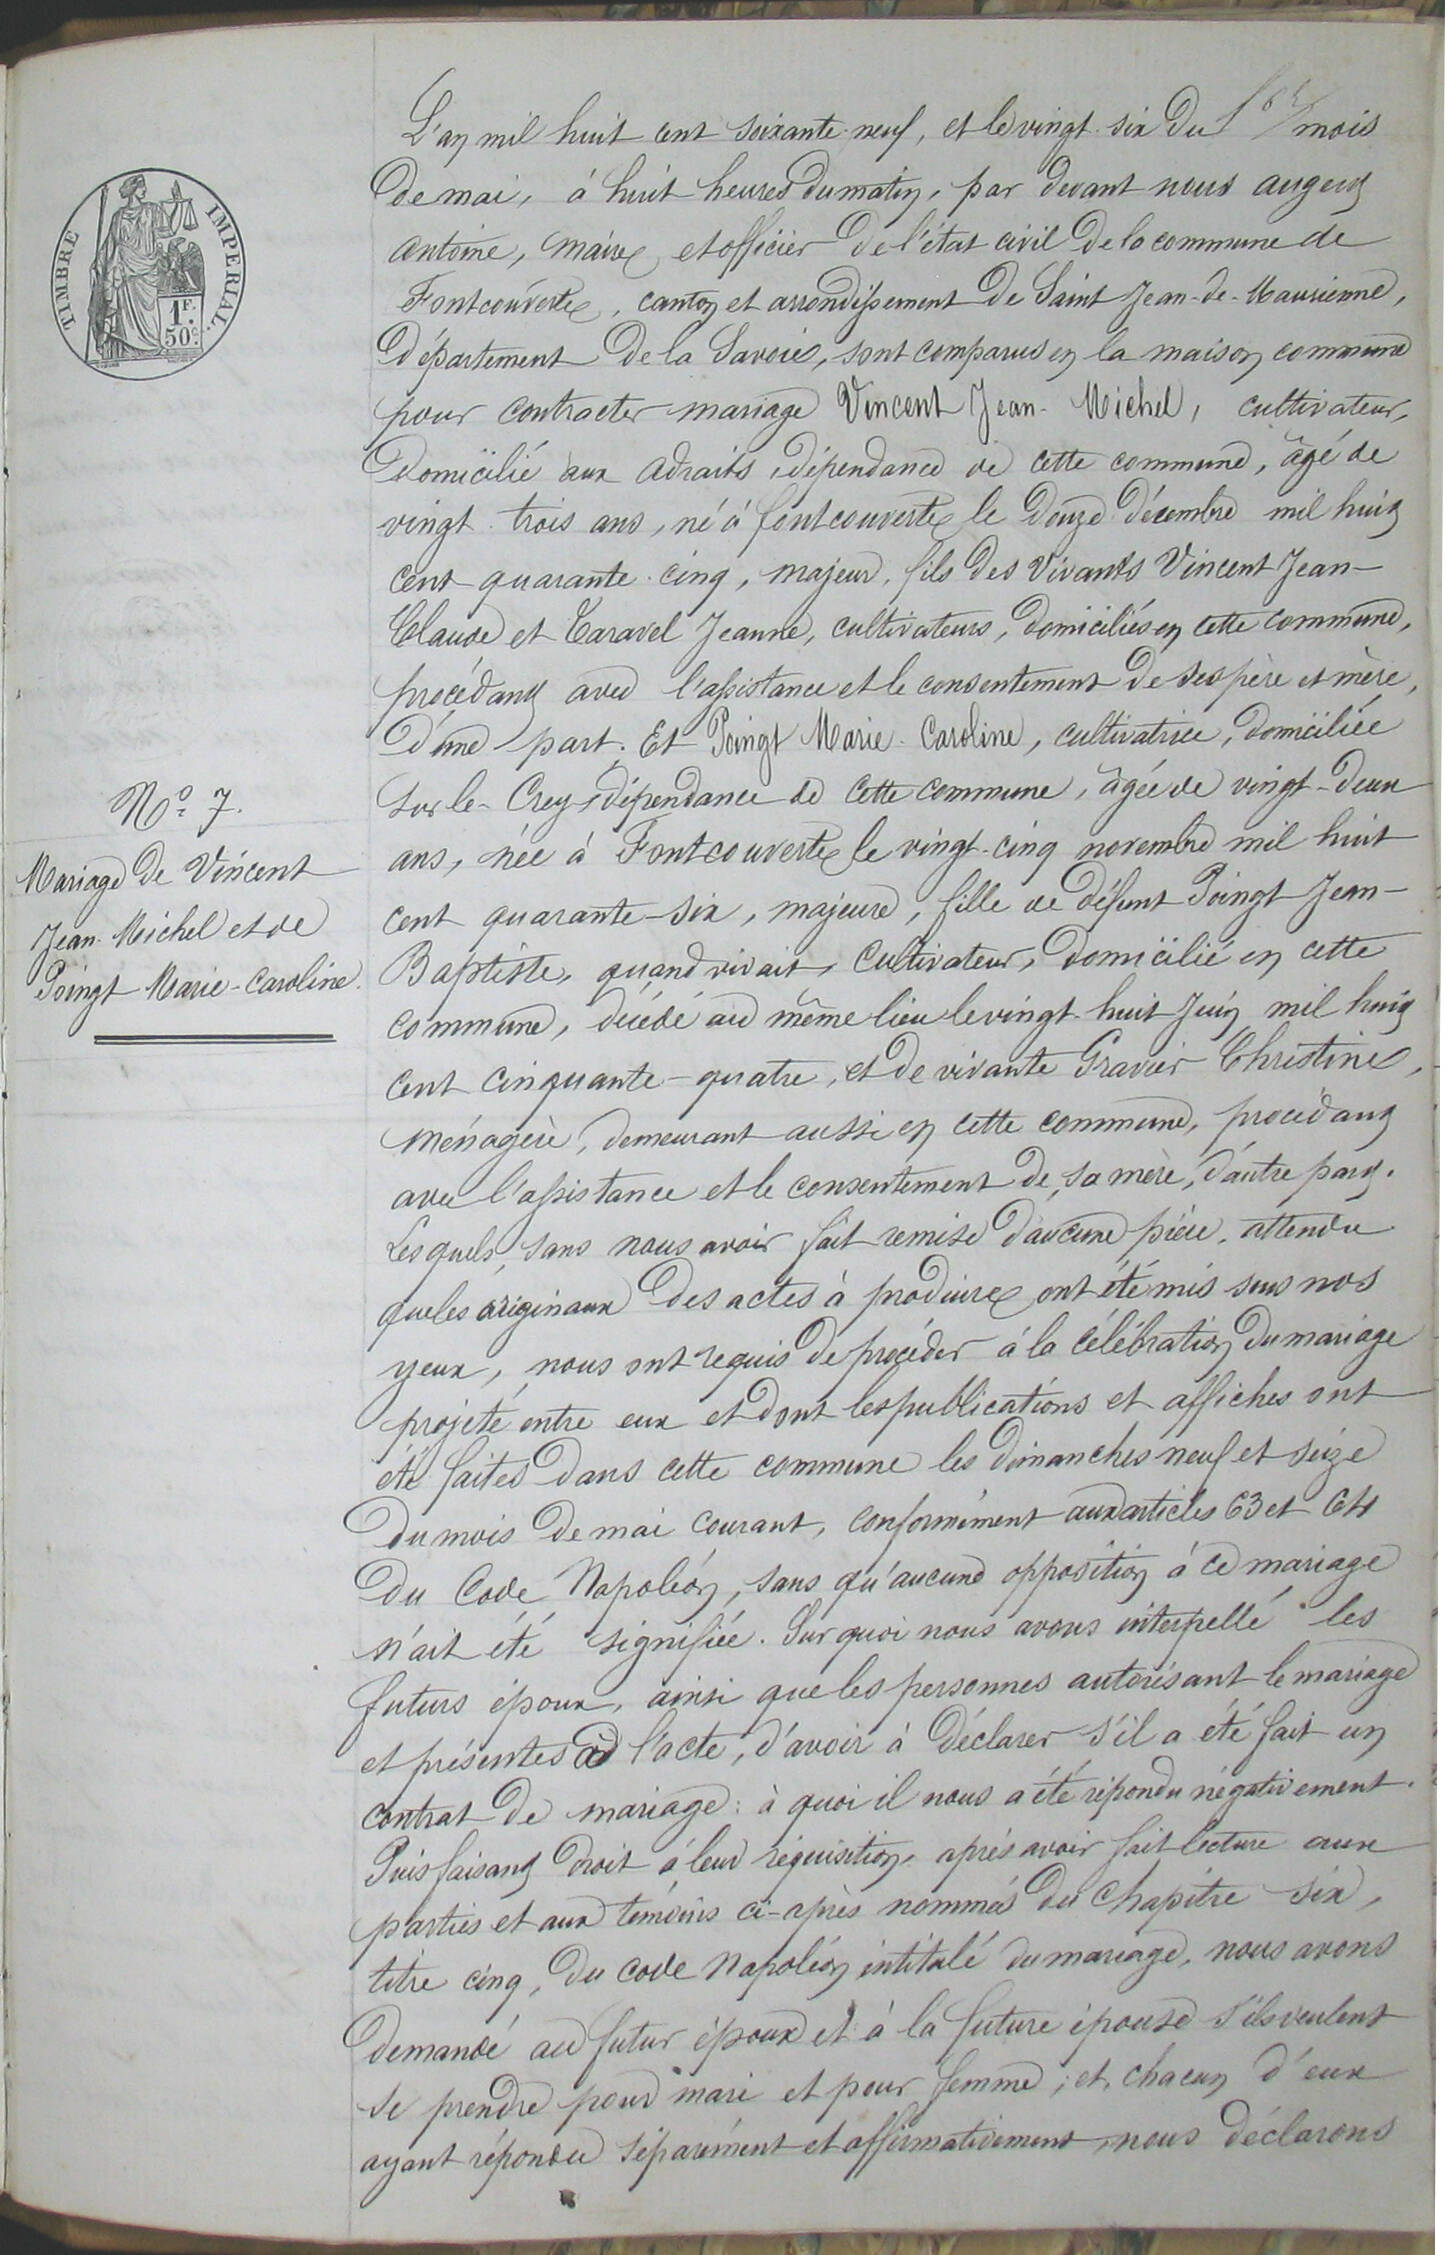 L'an mil huit cent soixante-neuf, et le vingt-six du mois
de mai, à huit heures du matin, par devant nous augert
antoine, maire et officier de l'état civil de la commune de
Fontcouverte, canton et arrondissement de Saint-Jean-de-Maurienne,
département de la Savoie, sont comparus en la maison commune
pour contracter mariage Vincent Jean-Michel, cultivateur,
domicilié aux adraits, dépendance de cette commune, âgé de
vingt-trois ans, né à fontcouverte le douze décembre mil huit
cent quarante-cinq, majeur, fils des vivants Vincent Jean-
Claude et Taravel Jeanne, cultivateurs, domiciliés en cette commune,
procédant avec l'assistance et le consentement de ses père et mère,
d'une part. Et Poingt Marie-Caroline, cultivatrice, domiciliée
sur le-Crey, dépendance de cette commune, âgée de vingt-deux
ans, née à Fontcouverte le vingt-cinq novembre mil huit
cent quarante-six, majeure, fille de défunt Poingt Jean-
Baptiste, quand vivait, cultivateur, domicilié en cette
commune, décédé au même lieu le vingt-huit Juin mil huit
cent cinquante-quatre, et de vivante Gravier Christine,
ménagère, demeurant aussi en cette commune, procédant
avec l'assistance et le consentement de sa mère, d'autre part.
Lesquels, sans nous avoir fait remise d'aucune pièce, attendu
que les originaux des actes à produire ont été mis sous nos
yeux, nous ont requis de procéder à la célébration du mariage
projeté entre eux et dont les publications et affiches ont
été faites dans cette commune les dimanches neuf et seize
du mois de mai courant, conformément aux articles 63 et 64
du Code Napoléon, sans qu'aucune opposition à ce mariage
n'ait été signifiée. Sur quoi nous avons interpellé les
futurs époux, ainsi que les personnes autorisant le mariage
et présentes à l'acte, d'avoir à déclarer s'il a été fait un
contrat de mariage : à quoi il nous a été répondu négativement.
Puis faisant droit à leur réquisition, après avoir fait lecture aux
parties et aux témoins ci-après nommés du chapitre six,
titre cinq, du code Napoléon intitulé du mariage, nous avons
demandé au futur époux et à la future épouse s'ils veulent
se prendre pour mari et pour femme ; et, chacun d'eux
ayant répondu séparément et affirmativement, nous déclarons
TIMBRE IMPERIAL.
1F.
50c.
No. 7.
Mariage de Vincent
Jean-Michel et de
Poingt Marie-Caroline.